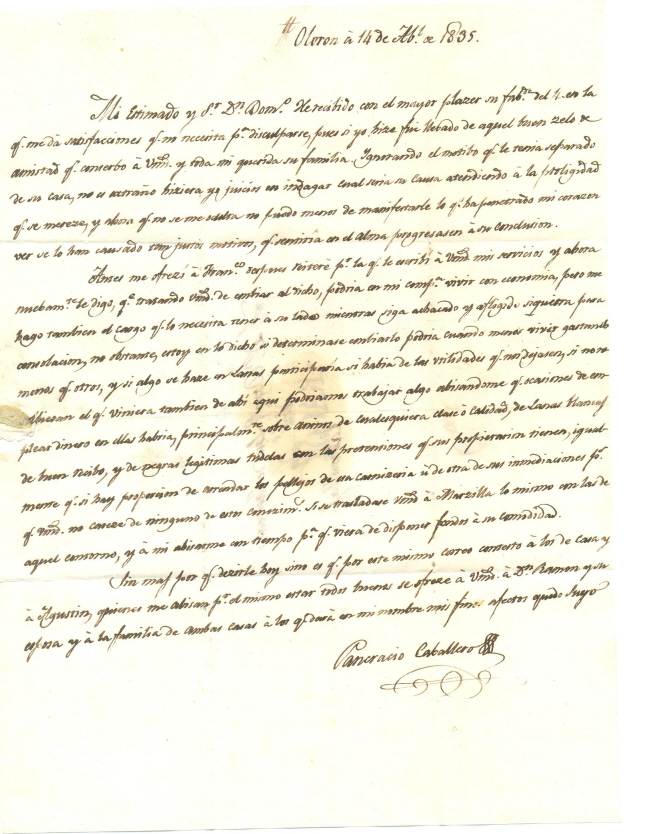 Oloron à 14 de Ab.l de 1835.
Mi Estimado y S.r D.n Dom.o He recibido con el mayor plazer su fab.e del 4. en la
q.e me dà satisfacciones q.e no necesita p.a disculparse, pues si yo hize fui llebado de aquel buen zelo de
amistad q.e conserbo à Vmd. y toda mi querida su familia. Ygnorando el motibo q.e le tenia separado
de su casa, no es extraño hiziera yo juicios en indagar cual seria su causa atendiendo à la
q.e se mereze, y ahora q.e no se me oculta no puedo menos de manifestarle lo q.e ha penetrado mi corazon
ver se lo han causado tan justos motibos, q.e sentiria en el alma progresasen à su conclusion.
Antes me ofrezi à Fran.co despues reiteré p.r la q.e le escribi à Vmd. mis servicios y ahora
nueban.te le digo, q.e tratando Vmd. de embiar al dicho, podria en mi comp.a vivir con economia, pero me
hago tambien el cargo q.e lo necesita tener à su lado mientras siga achacado y afligido siquiera para
consolacion, no obstante, estoy en lo dicho si determinase embiarlo podria cuando menos vivir gastando
menos q.e otros, y si algo se haze en Lanas participaria si habia de las utilidades q.e nos dejasen, si no
el q.e viniera tambien de ahi aqui podriamos trabajar algo abisandome q.e ocasiones de em
plear dinero en ellas habria, principalm.te sobre Aninos de Cualesquiera clase ò Calidad, de Lanas blancas
de buen recibo, y de negras legitimas tudelas con las pretensiones q.e sus propietarios tienen, igual
mente q.e si hay proporcion de arrendar los pellejos de esa carniceria ù de otra de sus inmediaciones p.s
q.e Vmd. no careze de ninguno de estos conozim.s Si se trasladase Vmd. à Marzilla lo mismo con las de
aquel contorno, y à mi abisarme con tiempo p.a q.e viera de disponer fondos à su comodidad.
Sin mas por q.e dezirle hoy sino es q.e por este mismo correo contesto à los de Casa y
à Agustin, quienes me abisan p.r el mismo estar todos buenos se ofreze à Vmd. à D.n Ramon y su
esposa y à la familia de ambas casas à los q.e dará en mi nombre mis finos afectos quedo Suyo
Pancracio Caballero